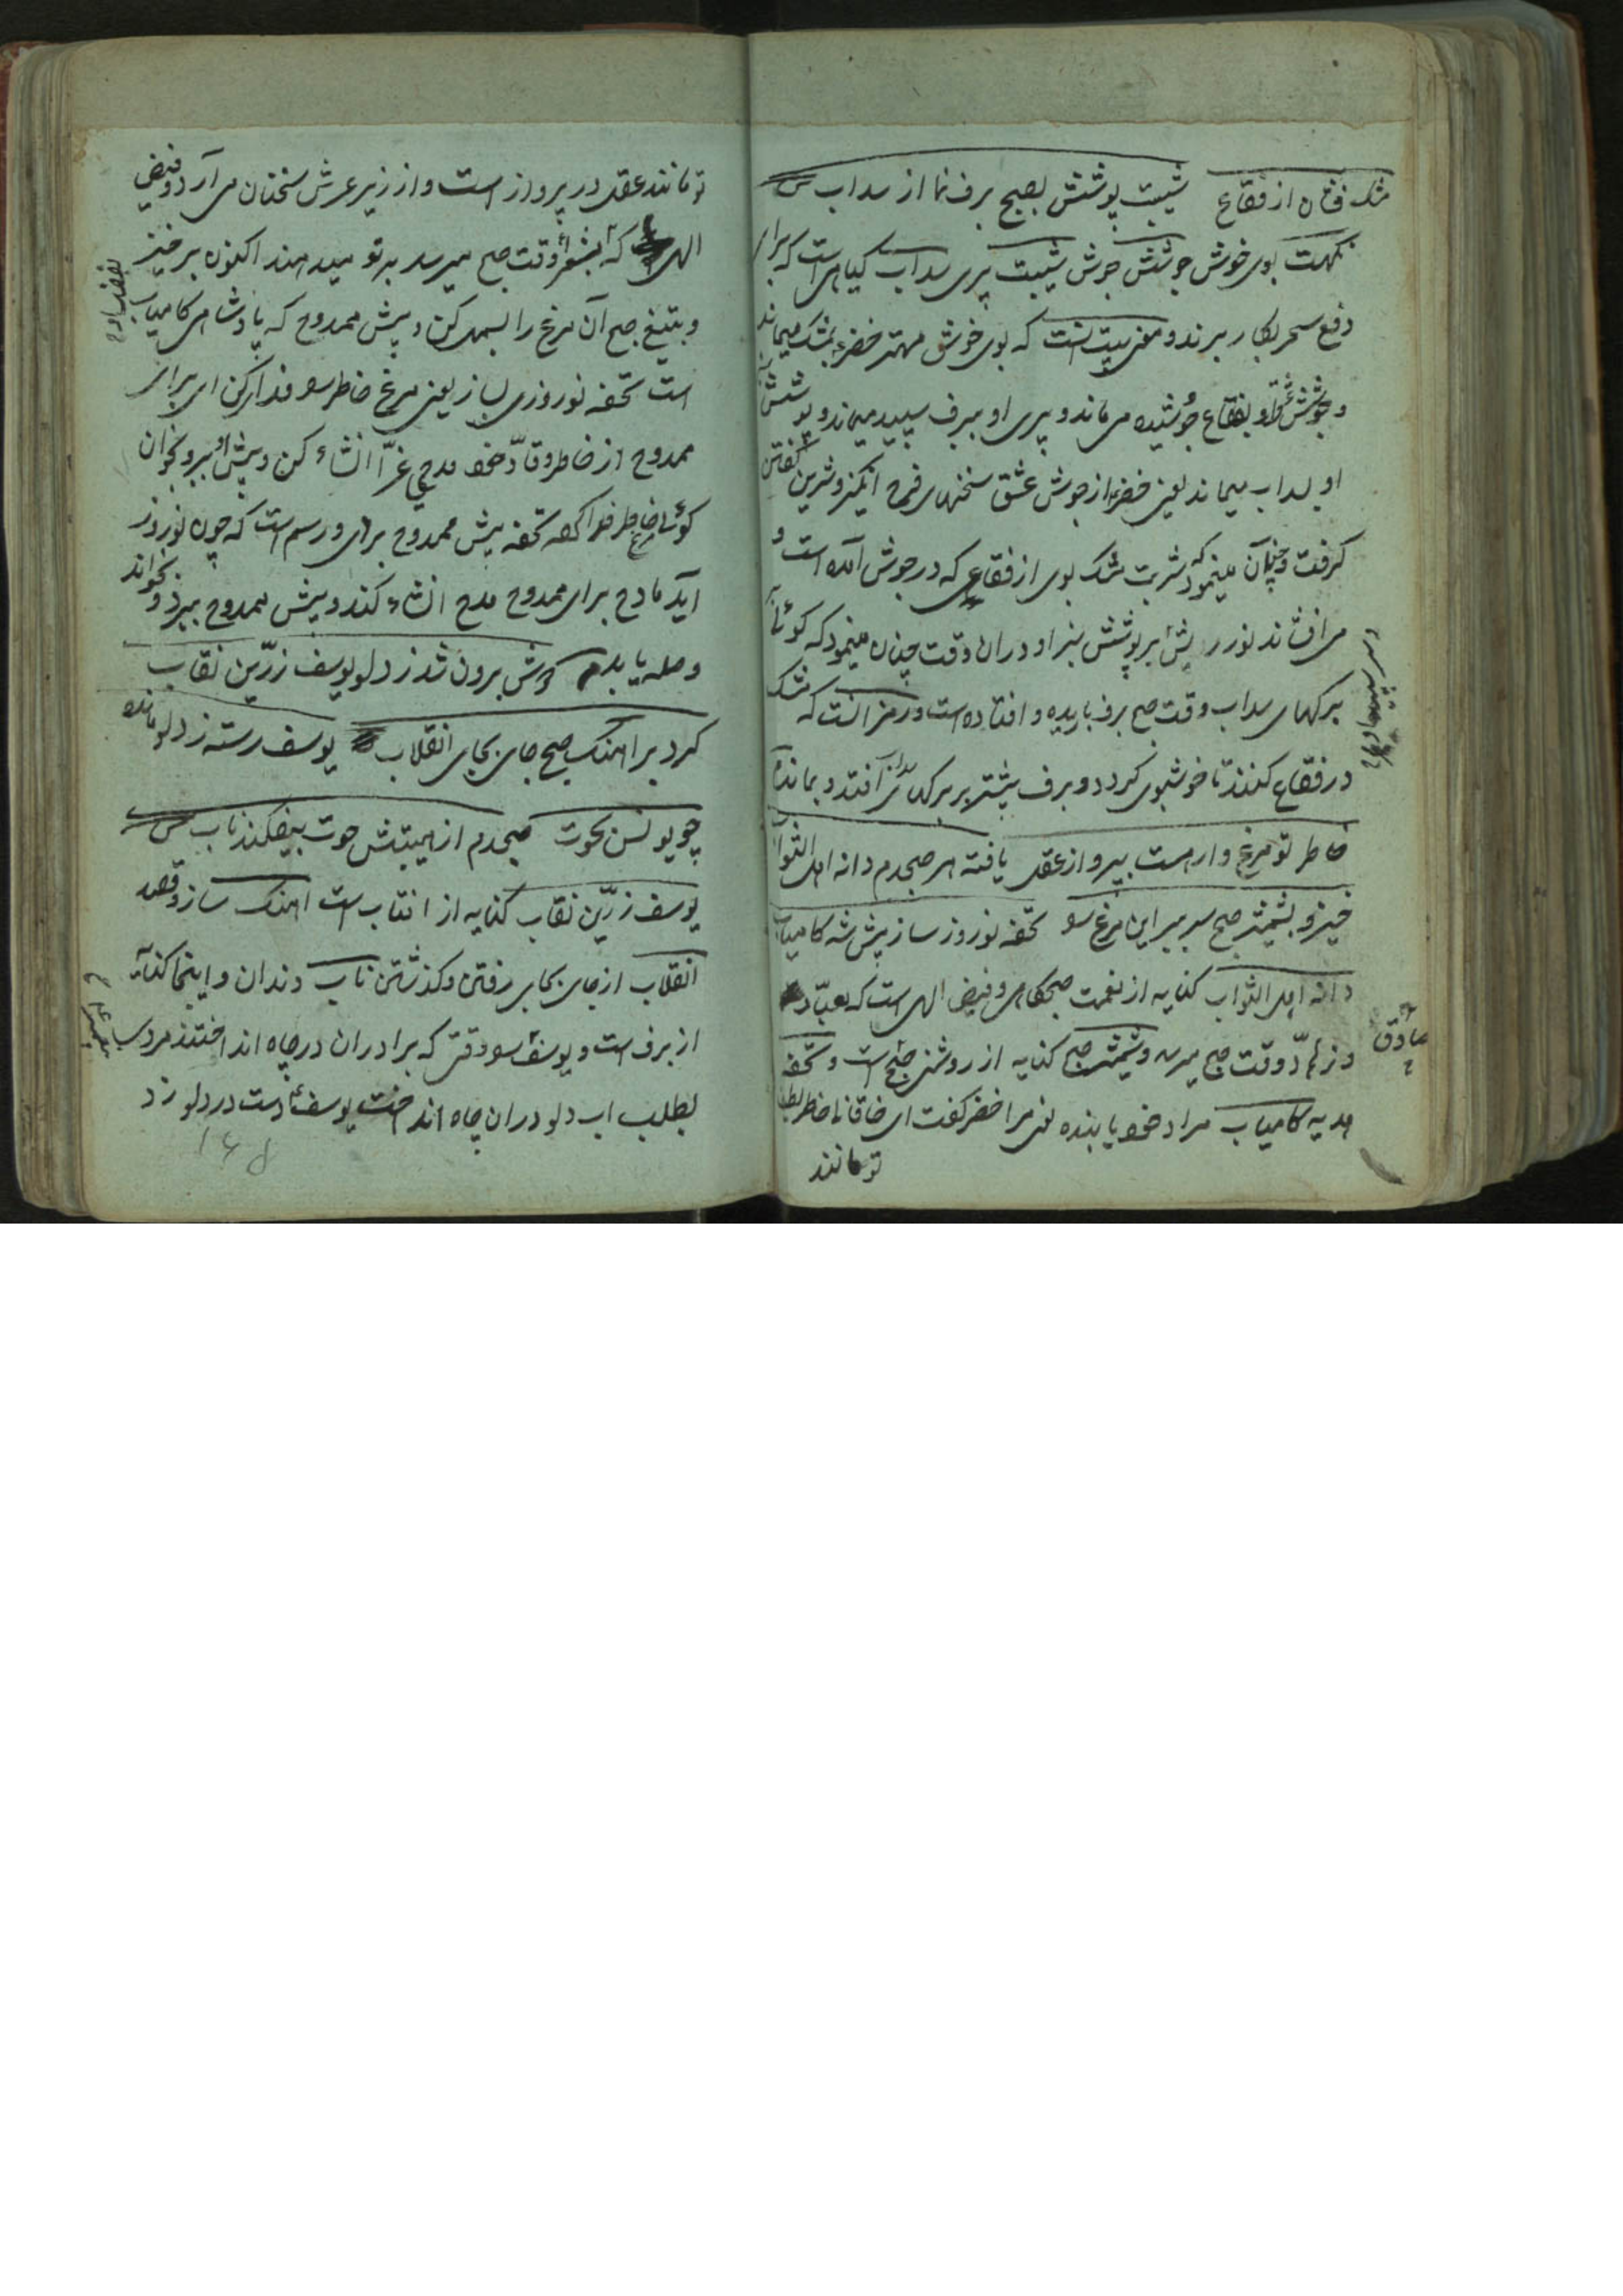 مشک فشان از فقاع شیبت پوشنش بصبح برف نما از سداب
نکهت بوی خوش جوشش جوش شیبت پیری سداب کیاهی است که برای
دفع سحر بکار برند و معنی بیت آنست که بوی خوش مهتر خضر بمشک میماند
و جوشش او بفقاع جوشیده می ماند و پیری او ببرف سپید میماند و پوشش
او بسداب میماند یعنی خضر از جوش عشق سخنهای فرح انگیز و شیرین گفتن
کرفت و چنان مینمود که شربت مشک بوی از فقاعی که در جوش آمده است
می افشاند نور ریش بر پوشش سبز او دران وقت چنان مینمود که کوئی
برکهای سداب وقت صبح برف باریده و افتاده است و رمز انست که مشک
در فقاع کنند تا خوشبوی کردد و برف بیشتر بر برک سداب افتد و بماند
خاطر تو مرغ وار است بپرواز عقل یافته هر صبحدم دانه اهل الثواب
خیز و بشمشیر صبح سر ببر این مرغ را تحفه نوروز ساز پیش شه کامیاب
دانه اهل الثواب کنایه از نعمت صبحکاهی و فیض الهی است که بعبّاد
و زهّاد وقت صبح میرسد و شمشیر صبح کنایه از روشنی صبح است و تحفه
صادق
هدیه کامیاب مراد خود یابنده یعنی مرا خضر کفت ای خاقانی خاطر
تو مانند
تو مانند عقل در پرواز است و از زیر عرش سخنان می آرد و فیض
الهی که وقت صبح میرسد به تو میدهند اکنون برخیز
و بتیغ صبح آن مرغ را بسمل کن و پیش ممدوح که پادشاهی کامیاب
است تحفه نوروزی بساز یعنی مرغ خاطر را فدا کن ای برای
ممدوح از خاطر وقّاد خود مدحی غرّا انشاء کن و پیش او ببر و بخوان
کوئی خاطر خود را کشته تحفه پیش ممدوح بری و رسم است که چون نوروز
آید مادح برای ممدوح مدح انشاء کند و پیش ممدوح ببرد و بخواند
و صله یابد دوش برون شد ز دلو یوسف زرّین نقاب
کرد بر آهنک صبح جای بجای انقلاب یوسف رسته ز دلو مانده
چو یونس بحوت صبحدم از هیبتش حوت بیفکند ناب
یوسف زرّین نقاب کنایه از افتاب است آهنک ساز و قصد
انقلاب از جای بجای رفتن و کذشتن ناب دندان و اینجا کنایه
از برف است و یوسف را وقتی که برادران در چاه انداختند مردی
بطلب اب دلو دران چاه انداخت یوسف دست در دلو زد